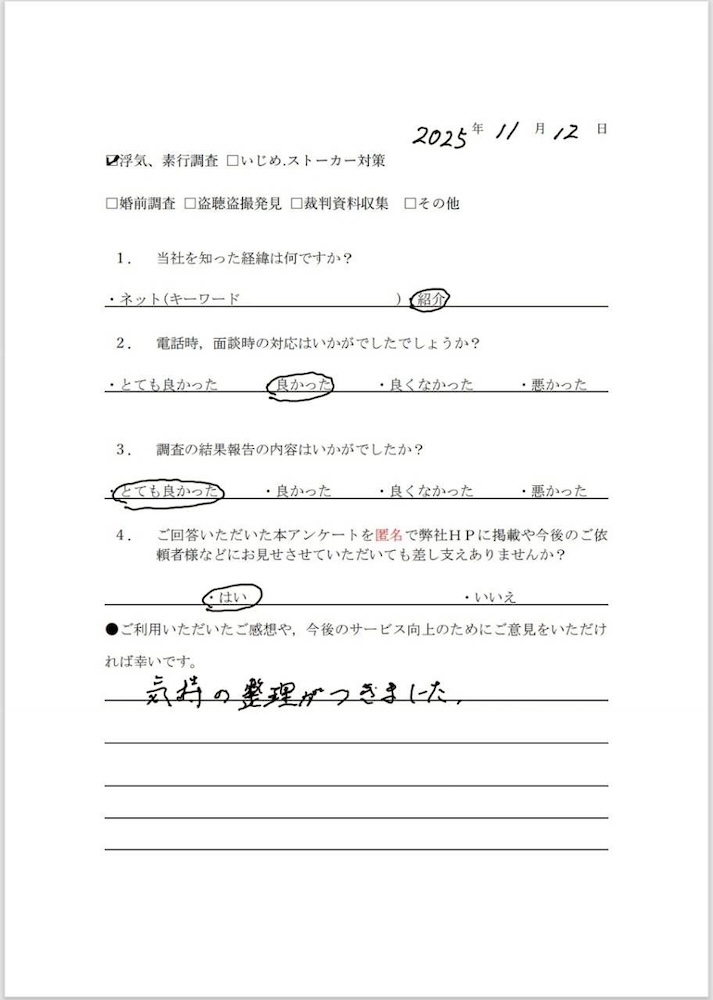 2025年 11 月 12 日
☑浮気、素行調査 □いじめ.ストーカー対策
□婚前調査 □盗聴盗撮発見 □裁判資料収集 □その他
１． 当社を知った経緯は何ですか？
・ネット(キーワード )・紹介
２． 電話時，面談時の対応はいかがでしたでしょうか？
・とても良かった ・良かった ・良くなかった ・悪かった
３． 調査の結果報告の内容はいかがでしたか？
・とても良かった ・良かった ・良くなかった ・悪かった
４． ご回答いただいた本アンケートを匿名で弊社ＨＰに掲載や今後のご依
頼者様などにお見せさせていただいても差し支えありませんか？
・はい ・いいえ
●ご利用いただいたご感想や，今後のサービス向上のためにご意見をいただけ
れば幸いです。
気持の整理がつきました.